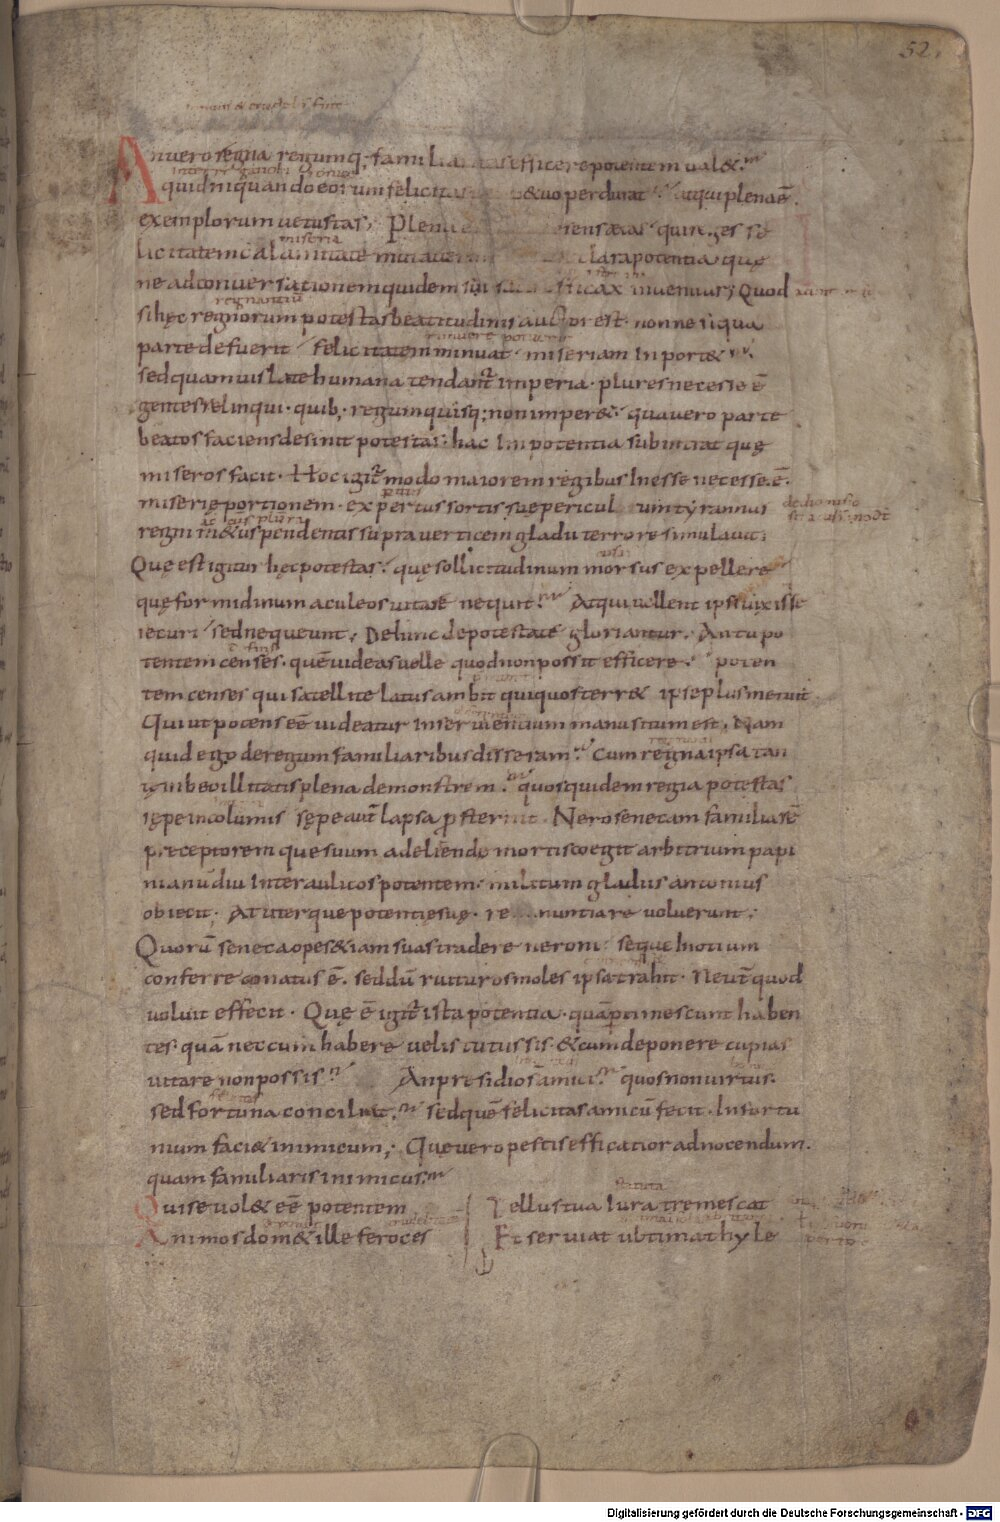 52.
An uero regna regumq; familiaritas efficere potentem ual&
quidni quando eorum felicitas perpetuo perdurat Atqui plena ē
exemplorum uetustas, Plena
licitatem calamitate mutauerint clara potentia quę
ne ad conuersationem quidem sui satis efficax inuenitur; Quod
si hęc regnorum potestas beatitudinis auctor est. nonne si qua
parte defuerit felicitatem minuat. miseriam inport&
sed quamuis late humana tendant imperia. plures necesse ē
gentes relinqui. quib; regum quisq; non imper&. qua uero parte
beatos faciens desinit potestas. hac Inpotentia subintrat quę
miseros facit. Hoc igitur modo maiorem regibus Inesse necesse.ē.
miserię portionem. expertus sortis suę periculorum tyrannus
regni m&us pendentis supra uerticem gladii terrore simulauit;
Quę est igitur hęc potestas. quę sollicitudinum morsus expellere
quę formidinum aculeos uitare nequit. Atqui uellent ipsi uixisse
securi sed nequeunt; Dehinc de potestate gloriantur. An tu po
tentem censes. quē uideas uelle quod non possit efficere. poten
tem censes qui satellite latus ambit qui quos terr& ipse plus metuit
Qui ut potens eē uideatur in seruientium manu situm est. Nam
quid ego de regum familiaribus disseram. Cum regna ipsa tan
tę inbecillitatis plena demonstrem. quos quidem regia potestas
sępe incolumis sępe aut lapsa psternit. Nero senecam familiarē
preceptorem que suum ad eliendę mortis coegit arbitrium papi
nianū diu Inter aulicos potentem. militum gladiis antonius
obiecit. At uterque potentię suę. renuntiare uoluerunt;
Quorū seneca opes & iam suas tradere neroni seque In otium
conferre conatus ē. sed dū ruituros moles ipsa trahit. Neuter quod
uoluit effecit. Quę ē igitur ista potentia. quā ptimescunt haben
tes. quā nec cum habere uelis tutus sis. & cum deponere cupias
uitare non possis. An presidio sunt amici. quos non uirtus.
sed fortuna conciliat. sed quē felicitas amicū fecit. Infortu
nium faci& inimicum; Que uero pestis efficatior ad nocendum.
quam familiaris inimicus.
Qui se uol& eē potentem
Animos dom& ille feroces
Tellus tua Iura tremescat
Et seruiat ubtima thyle
Digitalisierung gefördert durch die Deutsche Forschungsgemeinschaft - DFG